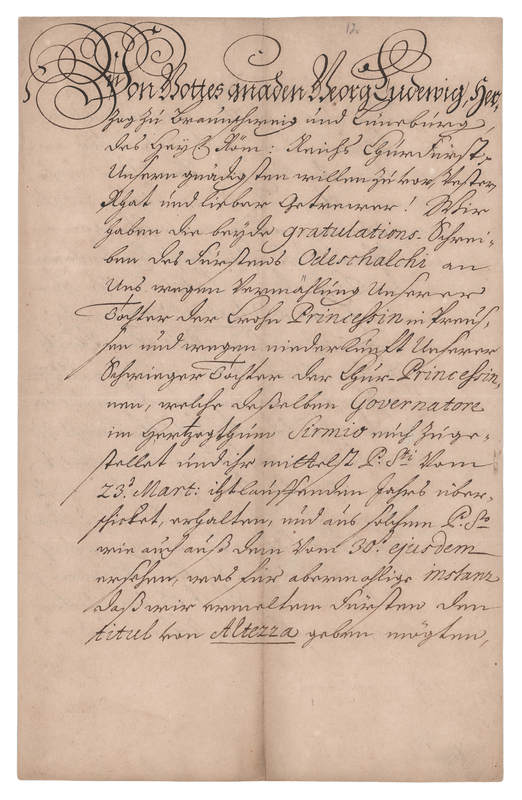 12
Von Gottes gnaden Georg Ludewig, Her-
zog zu Braunschweig und Lüneburg,
des Heyl. Röm: Reichs Churfürst p.
Unsern gnädigsten willen zuvor, Vester
Rhat und lieber Getrewer! Wir
haben die beyde gratulations-Schrei-
ben des Fürstens Odeschalchi an
Uns wegen Vermählung Unserer
Tochter der Crohn Princessin in Preus-
sen und wegen niederkunft Unserer
Schwieger Tochter der Chur-Princessin,
nen, welche deßelben Governatore
im Hertzogthum Sirmio euch zuge-
stellet und ihr mittelst P. Sti vom
23t Mart: itztlauffenden Jahrs über-
schicket, erhalten, und aus solchem P. Sto
wie auch auß dem vom 30t ejusdem
ersehen, was für abermahlige instanz
daß wir ermeltem Fürsten den
titul von Altezza geben mögten,